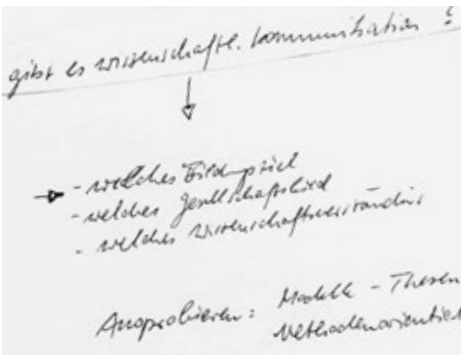 gibt es wissenschaftl. Kommunikation ?
- welches Bildungsziel
- welches Gesellschaftsbild
- welches Wissenschaftsverständnis
Ausprobieren: Modelle - Thesen
Methodenorientiert